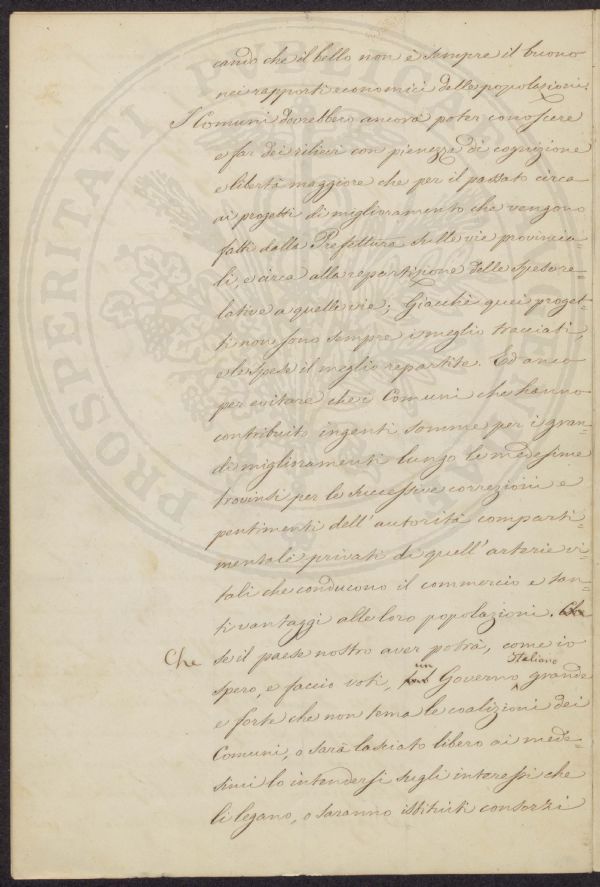 cando che il bello non è sempre il buono
nei rapporti economici delle popolazioni.
I Comuni dovrebbero ancora poter conoscere
e far dei rilievi con pienezza di cognizione
e libertà maggiore che per il passato circa
ai progetti di miglioramento che vengono
fatti dalla Prefettura sulle vie provincia-
li, e circa alla repartizione delle spese re-
lative a quelle vie; Giacchè quei proget-
ti non sono sempre i meglio tracciati,
e le spese il meglio repartite. Ed anco
per evitare che i Comuni che hanno
contribuito ingenti somme per i gran-
di miglioramenti lungo le medesime
trovinsi per le successive correzioni e
pentimenti dell'autorità comparti-
mentale privati di quell'arterie vi-
tali che conducono il commercio e tan-
ti vantaggi alle loro popolazioni.
Che se il paese nostro aver potrà, come io
spero, e faccio voti, un Governo Italiano grande
e forte che non tema le coalizioni dei
Comuni, o sarà lasciato libero ai mede-
simi lo intendersi sugli interessi che
li legano, o saranno istituiti consorzi
PROSPERITATI PUBLICAE